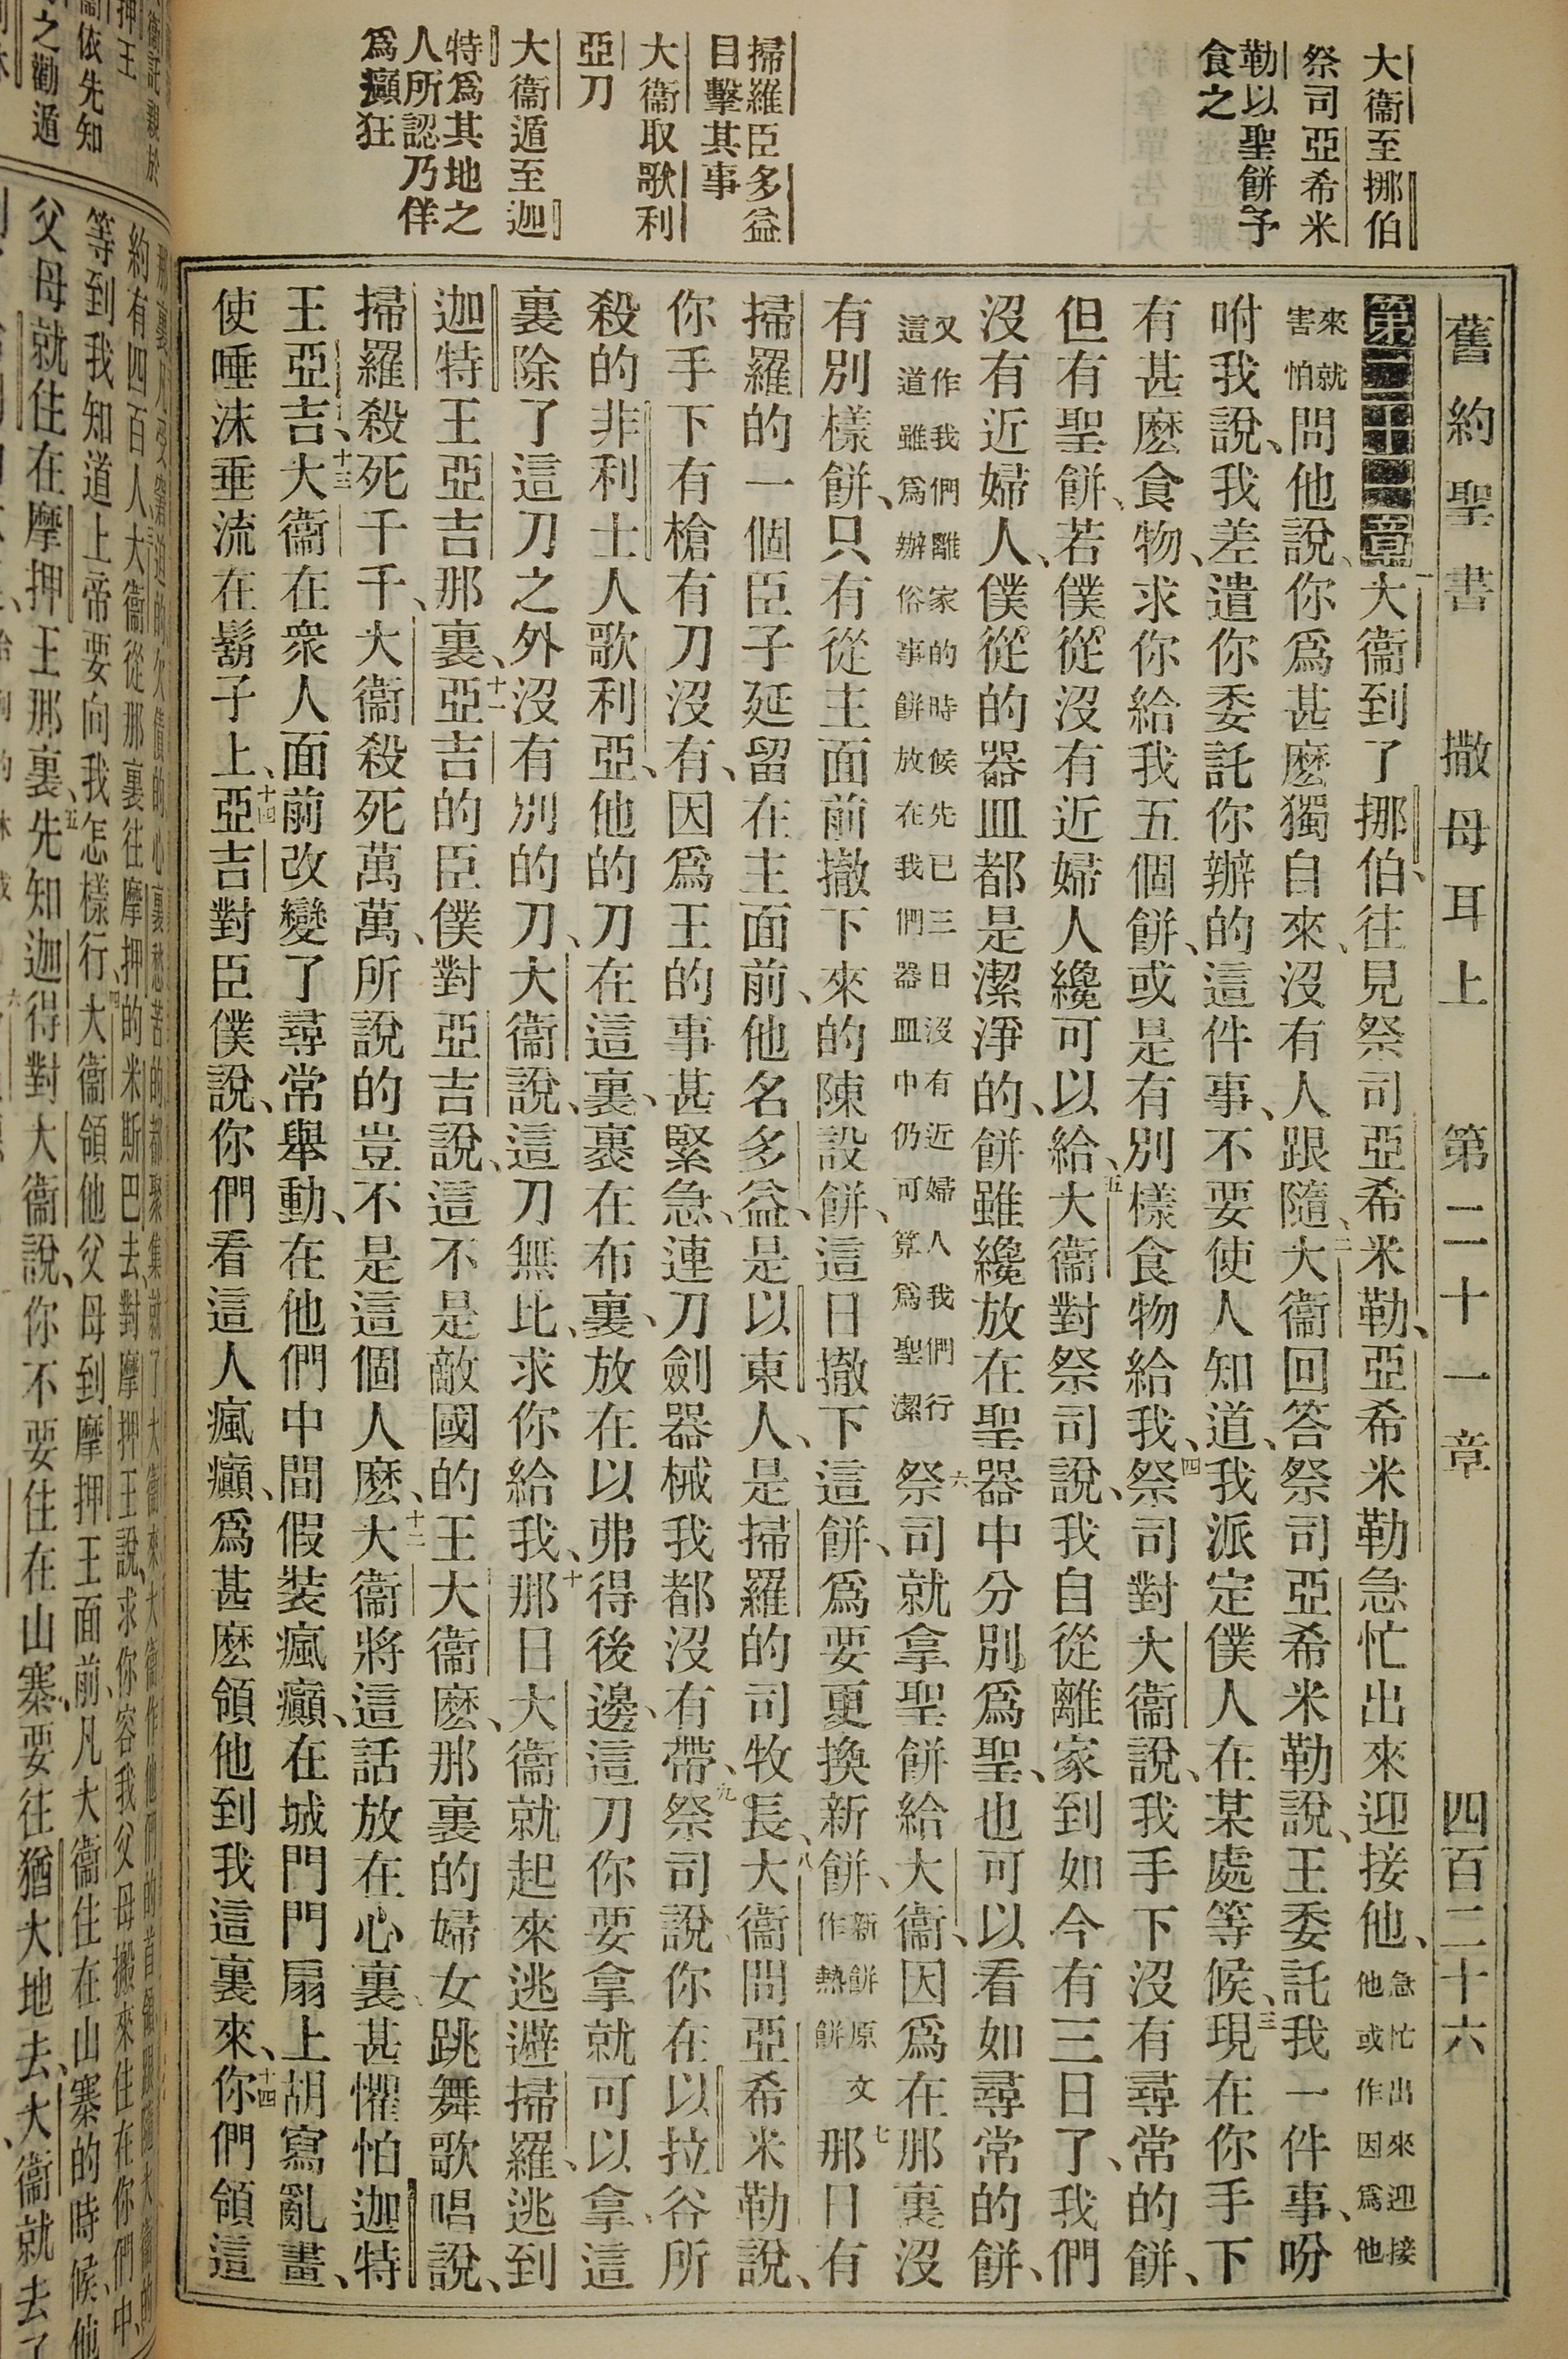 舊約聖書 撒母耳上 第二十一章 四百二十六
大衞至挪伯
祭司亞希米
勒以聖餅予
食之
掃羅臣多益
目擊其事
大衞取歌利
亞刀
大衞遁至迦
特爲其地之
人所認乃佯
爲癲狂
第二十一章 一大衞到了挪伯、往見祭司亞希米勒、亞希米勒急忙出來迎接他、急忙出來迎接他或作因爲他
來就害怕問他說、你爲甚麽獨自來、沒有人跟隨、二大衞回答祭司亞希米勒說、王委託我一件事、吩
咐我說、我差遣你委託你辦的這件事、不要使人知道、我派定僕人在某處等候、三現在你手下
有甚麽食物、求你給我五個餅、或是有別樣食物給我、四祭司對大衞說、我手下沒有尋常的餅、
但有聖餅、若僕從沒有近婦人纔可以給、五大衞對祭司說、我自從離家到如今有三日了、我們
沒有近婦人、僕從的器皿都是潔淨的、餅雖纔放在聖器中分別爲聖、也可以看如尋常的餅、
又作我們離家的時候先已三日沒有近婦人我們行這道雖爲辦俗事餅放在我們器皿中仍可算爲聖潔六祭司就拿聖餅給大衞、因爲在那裏沒
有別樣餅、只有從主面前撤下來的陳設餅、這日撤下這餅、爲要更換新餅、新餅原文作熱餅七那日有
掃羅的一個臣子延留在主面前、他名多益、是以東人、是掃羅的司牧長、八大衞問亞希米勒說、
你手下有槍有刀沒有、因爲王的事甚緊急、連刀劍器械我都沒有帶、九祭司說、你在以拉谷所
殺的非利士人歌利亞、他的刀在這裏、裹在布裏、放在以弗得後邊、這刀你要拿就可以拿、這
裏除了這刀之外沒有別的刀、大衞說、這刀無比、求你給我、十那日大衞就起來逃避掃羅、逃到
迦特王亞吉那裏、十一亞吉的臣僕對亞吉說、這不是敵國的王大衞麽、那裏的婦女跳舞歌唱說、
掃羅殺死千千、大衞殺死萬萬、所說的豈不是這個人麽、十二大衞將這話放在心裏、甚懼怕迦特
王亞吉、十三大衞在衆人面前改變了尋常舉動、在他們中間假裝瘋癲、在城門門扇上胡寫亂畫、
使唾沫垂流在鬍子上、十四亞吉對臣僕說、你們看這人瘋癲、爲甚麽領他到我這裏來、十四你們領這
衞依先知
之勸遁
約有四百人、大衞從那裏往摩押的米斯巴去、對摩押王說、求你容我父母搬來住在你們中、
等到我知道上帝要向我怎樣行、四大衞領他父母到摩押王面前、凡大衞住在山寨的時候他
父母就住在摩押王那裏、五先知迦得對大衞說、你不要住在山寨、要往猶大地去、大衞就去了